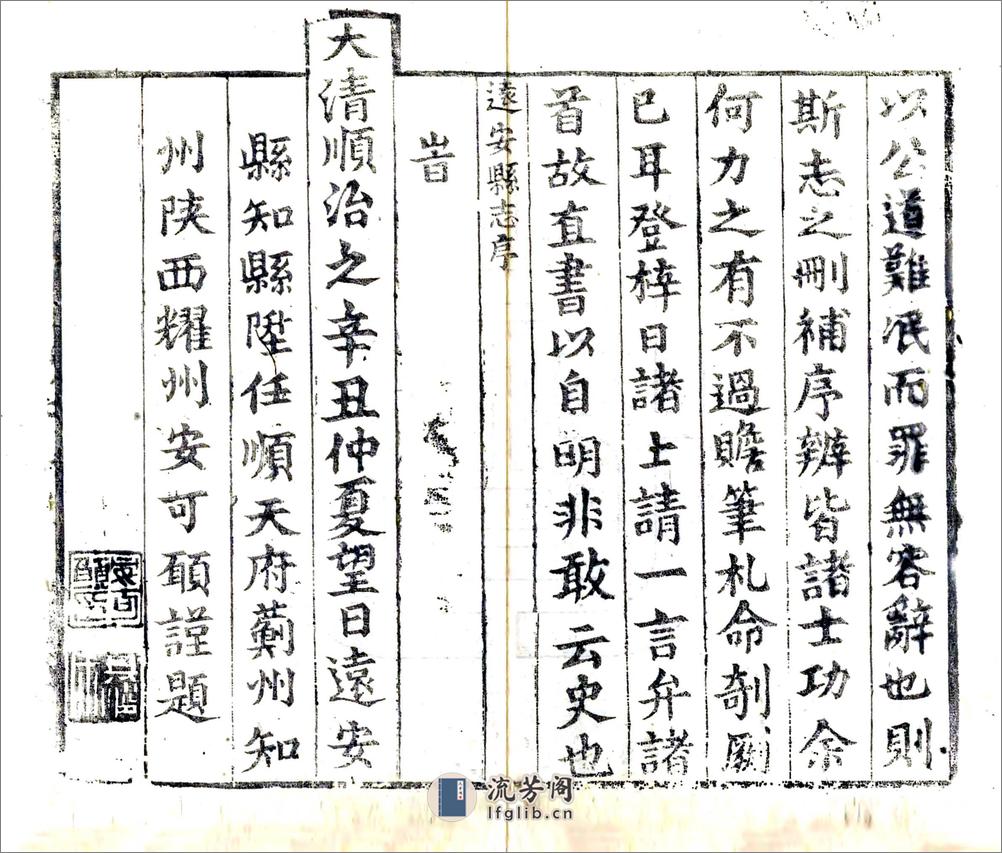 以公道難泯而罪無容辭也則
斯志之刪補序辦皆諸士功余
何力之有不過贍筆札命剞劂
已耳登梓日諸士請一言弁諸
首故直書以自明非敢云史也
遠安縣志序
旹
大清順治之辛丑仲夏望日遠安
縣知縣陞任順天府薊州知
州陝西耀州安可願謹題
流芳阁
lfglib.cn